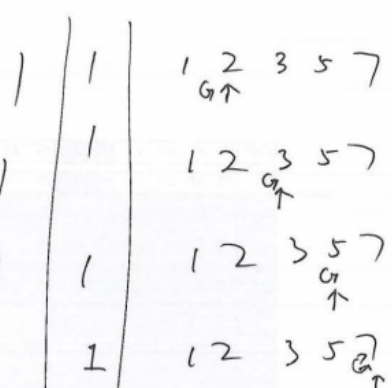 1 1 1 2 3 5 7
G↑
1 1 2 3 5 7
G↑
1 1 2 3 5 7
G
↑
1 1 2 3 5 7
G
↑